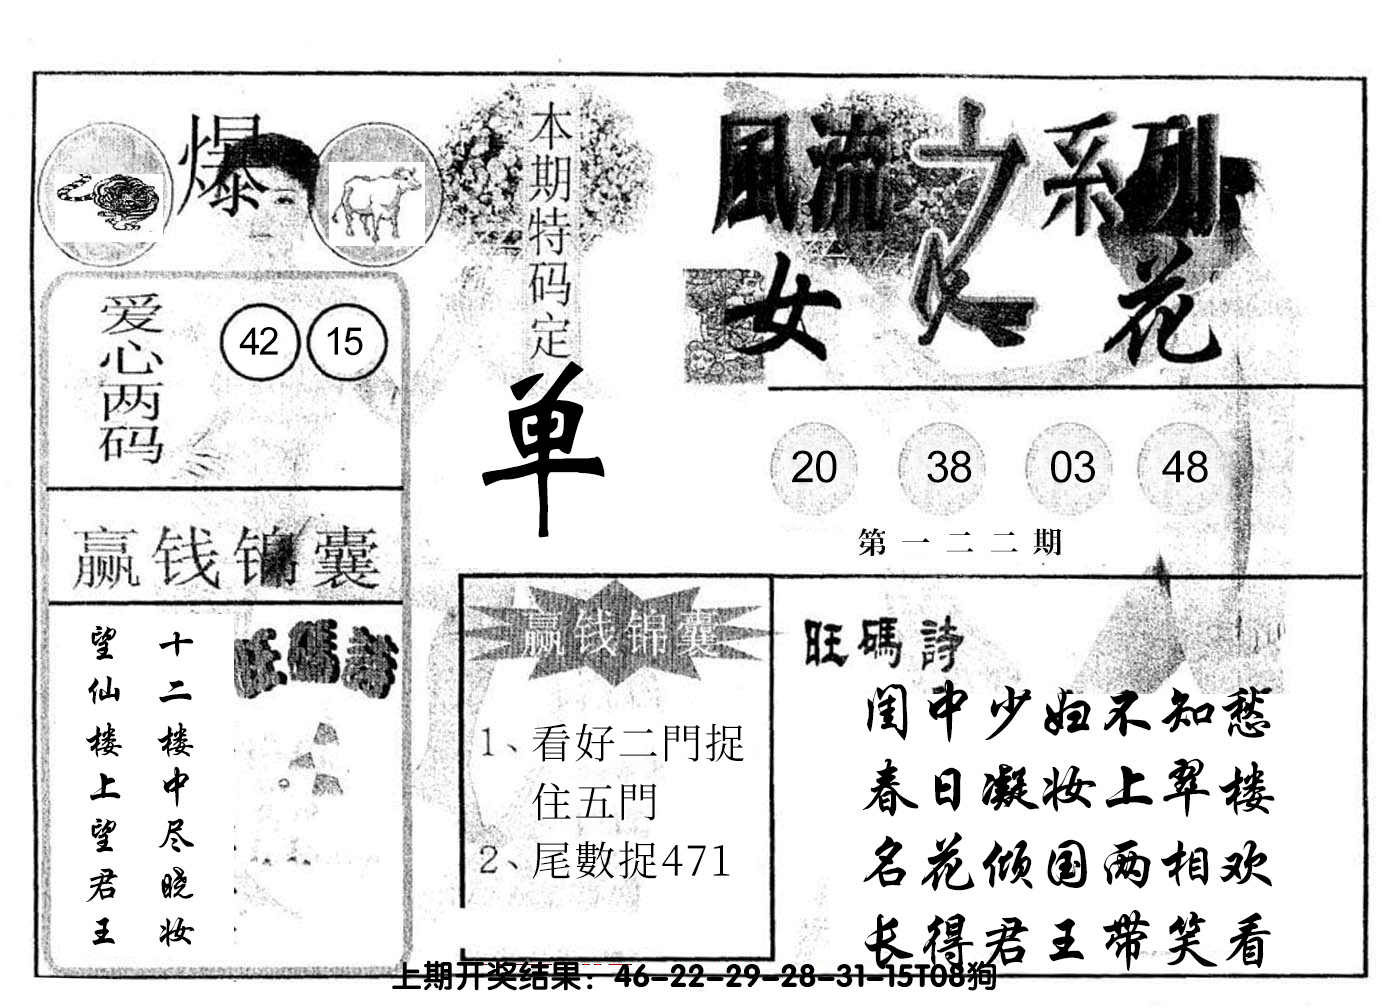 爆
本期特码定
单
風流之系列
女人花
爱心两码
42 15
20 38 03 48
第一二二期
赢钱锦囊
十二楼中尽晓妆
望仙楼上望君王
旺碼詩
赢钱锦囊
1、看好二門捉
住五門
2、尾數捉471
旺碼詩
闺中少妇不知愁
春日凝妆上翠楼
名花倾国两相欢
长得君王带笑看
上期开奖结果：46-22-29-28-31-15T08狗